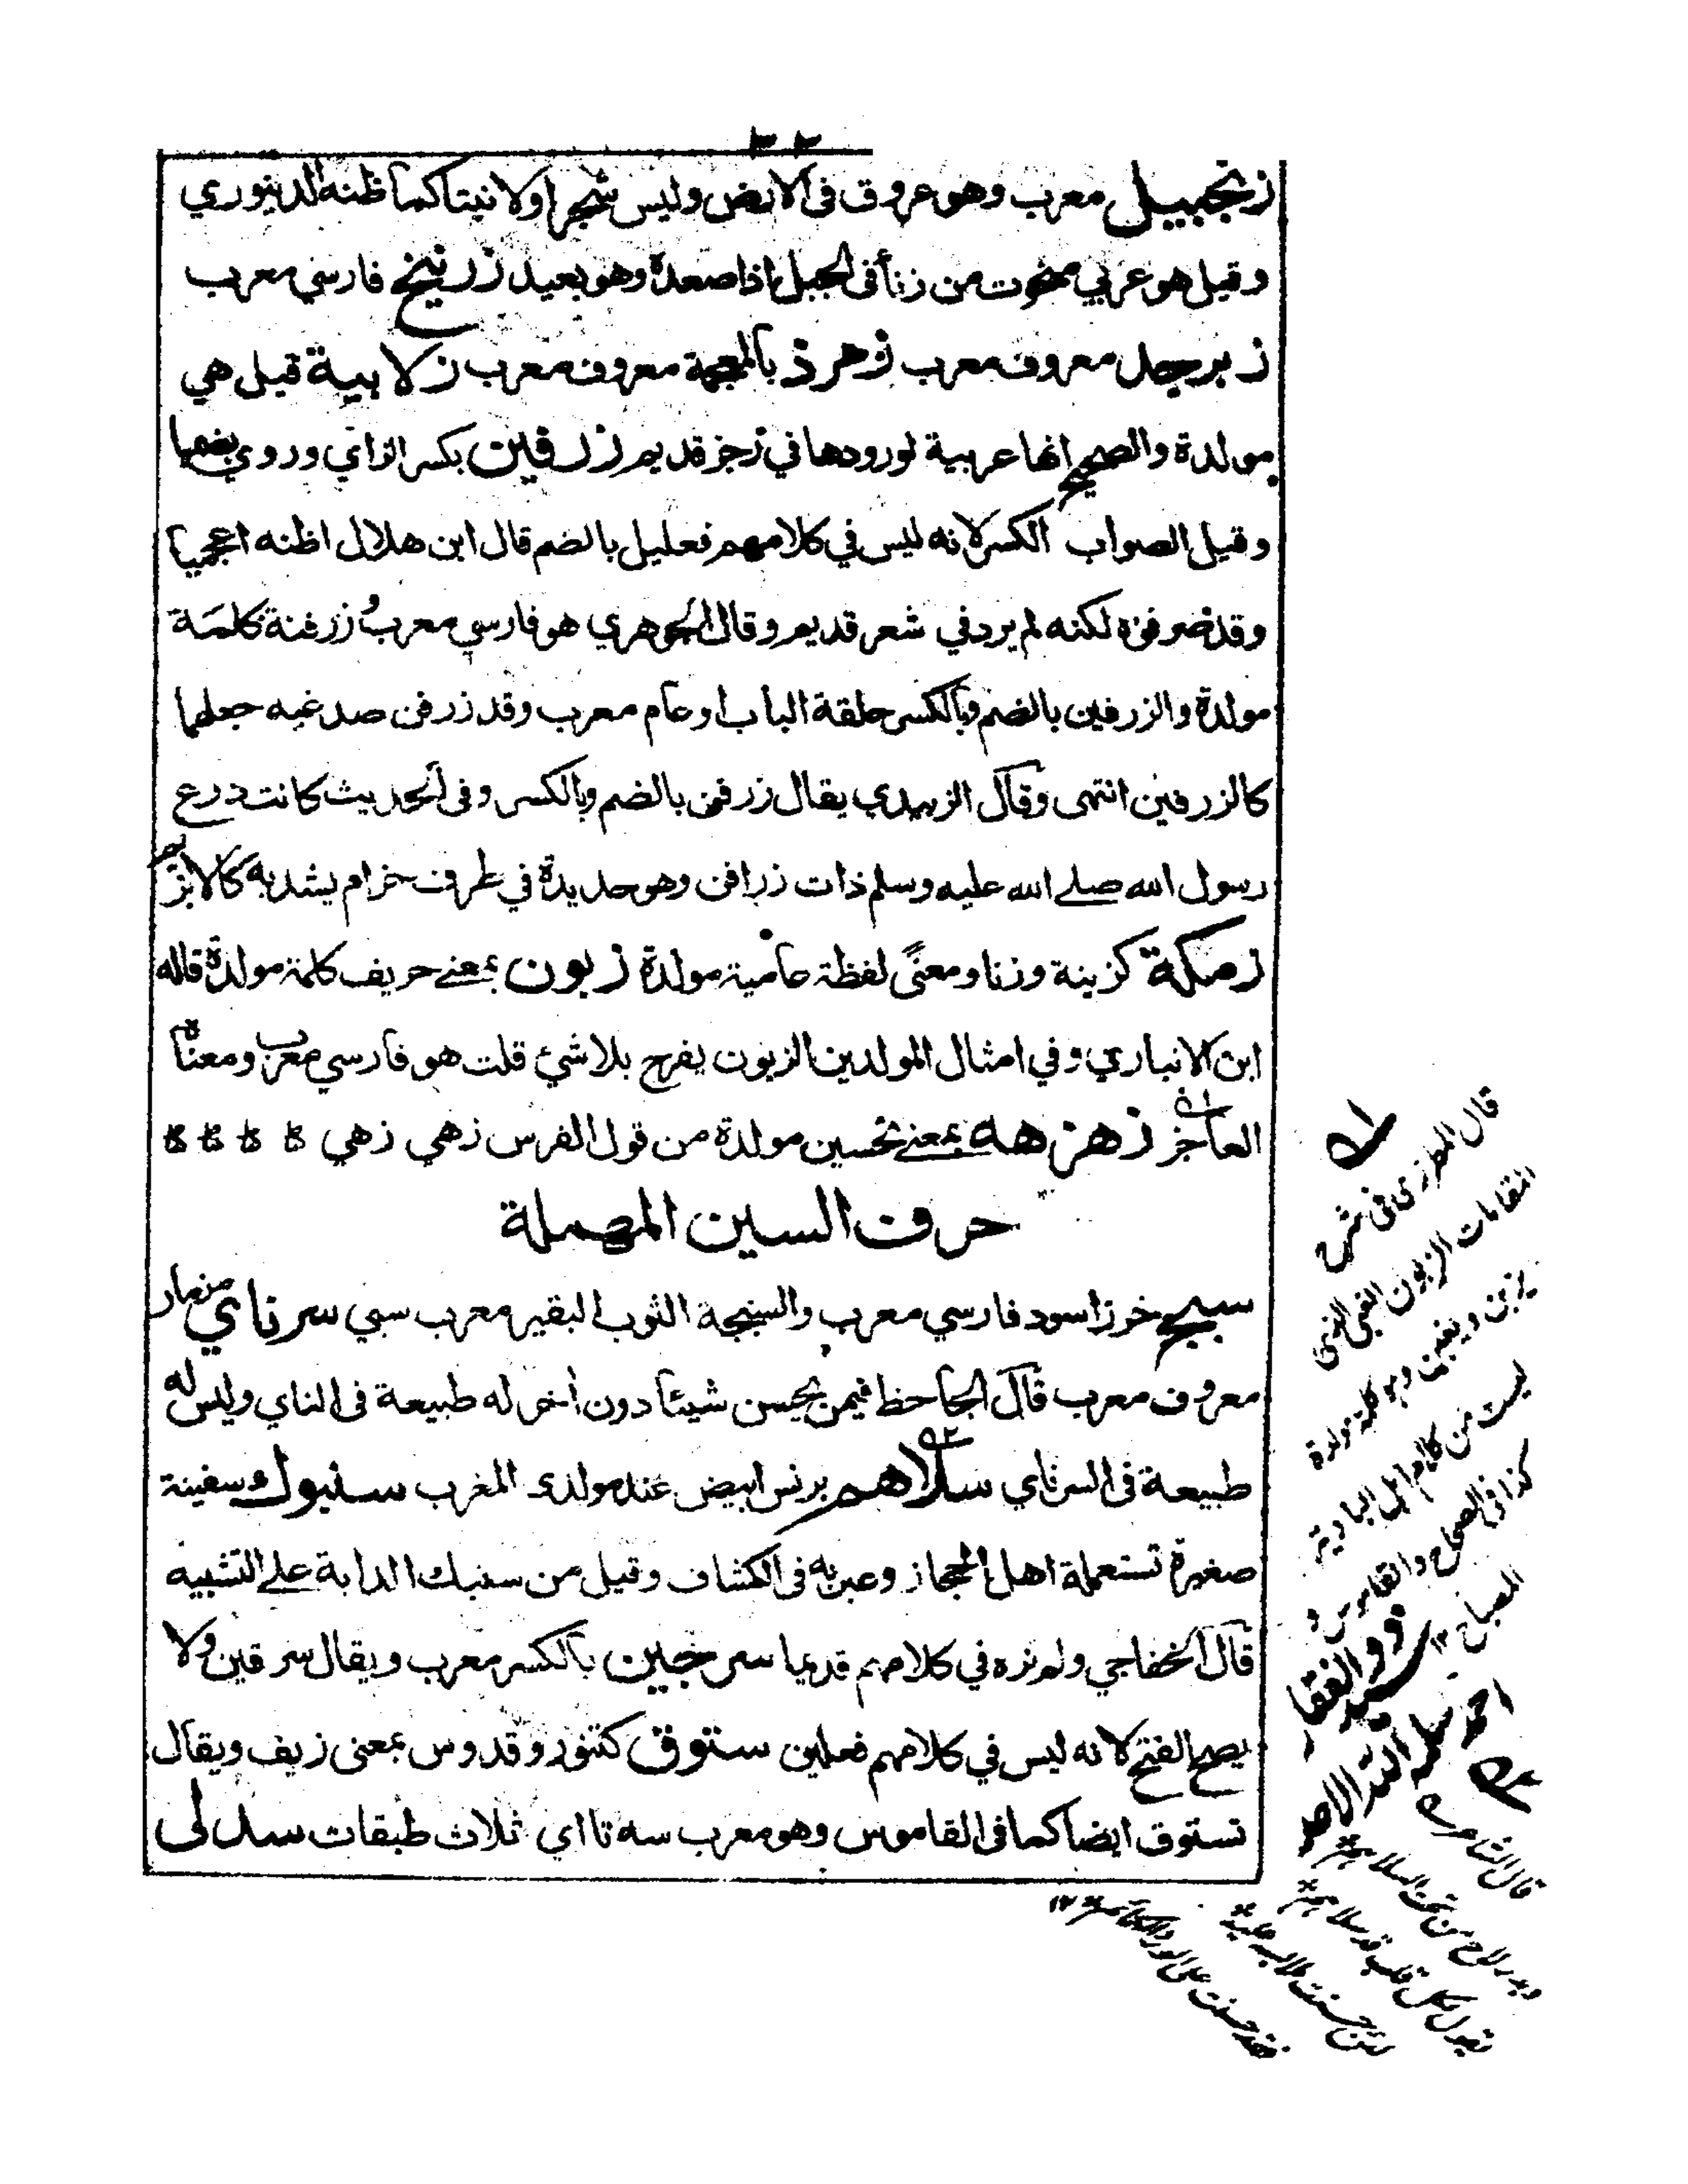 ٣٢
زنجبيل معرب وهو عروق فى الارض وليس شجرا ولا نبتا كما ظنه الدينوري
وقيل هو عربي منحوت من زنأ فى الجبل اذا صعدة وهو بعيد زرنيخ فارسي معرب
زبرجد معروف معرب زمرذ بالمعجمة معروف معرب زلابية قيل هي
مولدة والصحيح انها عربية لورودها في رجز قديم زرفين بكسر الزاي وروي بضمها
وقيل الصواب الكسر لانه ليس في كلامهم فعليل بالضم قال ابن هلال اظنه اعجميا
وقد صرفوه لكنه لم يرد في شعر قديم وقال الجوهري هو فارسي معرب زرفنة كلمة
مولدة والزرفين بالضم وبالكسر حلقة الباب او عام معرب وقد زرفن صدغيه جعلهما
كالزرفين انتهى وقال الزبيدي يقال زرفن بالضم وبالكسر وفى الحديث كانت درع
رسول الله صلے الله عليه وسلم ذات زرافن وهو حديدة في طرف حزام يشد به كالابزيم
زمكة كزينة وزنا ومعنًى لفظة عامية مولدة زبون بمعنے حريف كلمة مولدة قاله
ابن الانباري وفي امثال المولدين الزبون يفرح بلا شئ قلت هو فارسي معرب ومعناه
العاجز زهزهه بمعنے تحسين مولدة من قول الفرس زهي زهي
حرف السين المهملة
سبج خرز اسود فارسي معرب والسبجة الثوب البقير معرب سبي سرناي مزمار
معروف معرب قال الجاحظ فيمن يحسن شيئا دون اخر له طبيعة فى الناي وليس له
طبيعة فى السرناي سلاهم برنس ابيض عند مولدى المغرب سنبوك سفينة
صغيرة تستعملة اهل الحجاز وعبر به فى الكشاف وقيل من سنبك الدابة علے التشبيه
قال الخفاجي ولم نره في كلامهم قديما سرجين بالكسر معرب ويقال سرقين ولا
يصح الفتح لانه ليس في كلامهم فعلين ستوق كتنور وقدوس بمعنى زيف ويقال
تستوق ايضا كما فى القاموس وهو معرب سه تا اي ثلاث طبقات سدلى
قال المطرزى فى شرح
المقامات الزبون الغبي الذى
يزبن ويغبن وهو كلمة مولدة
ليست من كلام اهل البادية
كذا فى الصحاح والقاموس و
المصباح ١٢
ذو الفقار
احمد
قال الشاعر